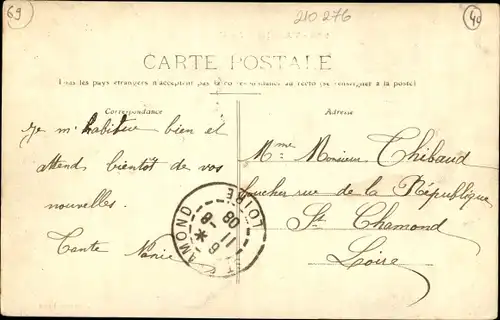 69
210 276
40
CARTE POSTALE
Tous les pays étrangers n'acceptent pas la correspondance au recto (se renseigner à la poste)
Correspondance
Adresse
Je m'habitue bien et
attend bientôt de vos
nouvelles.
Tante
Mme Monsieur Thibaud
boucher rue de la République
St Chamond
Loire
AMOND
LOIRE
6 * 8
11
08